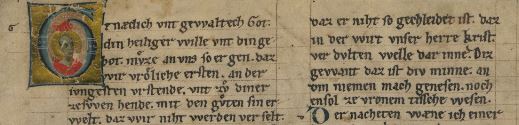 Gnædich vnt gewaltech Got.
din heiliger wille vnt din ge-
bot. mvze an vns so er gen. daz
wir vrôliche ersten. an der
iungesten vrstende. vnt zv diner
zeswen hende. mit den gůten sin er
welt. daz wir niht werden ver selt.
daz er niht so gechleidet ist. daz
in der wirt vnser herre krist.
ver dvlten welle dar inne. Diz
gewant daz ist div minne. an
vm niemen mach genesen. noch
ensol ze vronem tissche wesen.
Der nacheten wæne ich einer